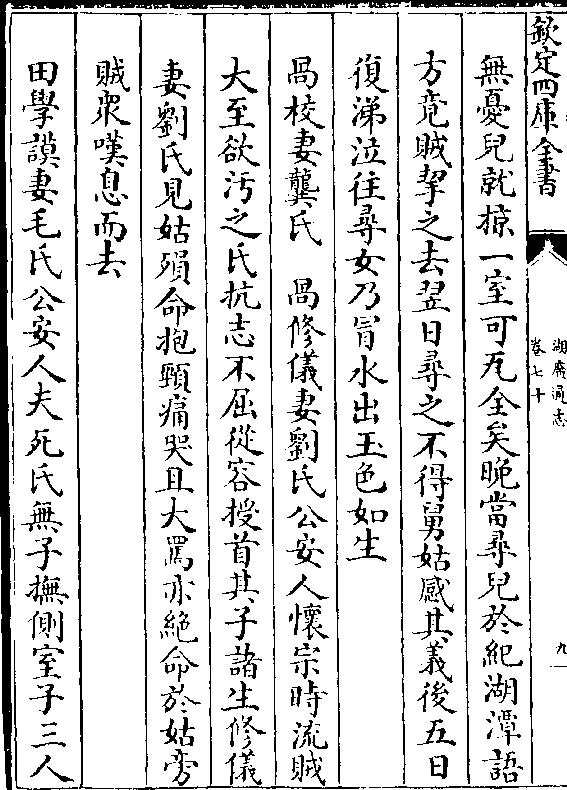 欽定四庫全書
湖廣通志
卷七十
九
無憂兒就掠一室可瓦全矣晚當尋兒於紀湖潭語
方竟賊挈之去翌日尋之不得舅姑感其義後五日
復涕泣往尋女乃冒水出玉色如生
咼校妻龔氏　咼修儀妻劉氏公安人懷宗時流賊
大至欲汚之氏抗志不屈從容授首其子諸生修儀
妻劉氏見姑殞命抱頸痛哭且大罵亦絶命於姑旁
賊衆嘆息而去
田學謨妻毛氏公安人夫死氏無子撫側室子三人